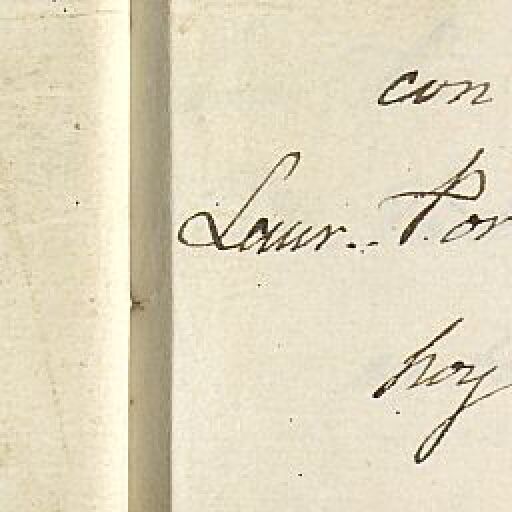 con
Laur.. Por
hoy